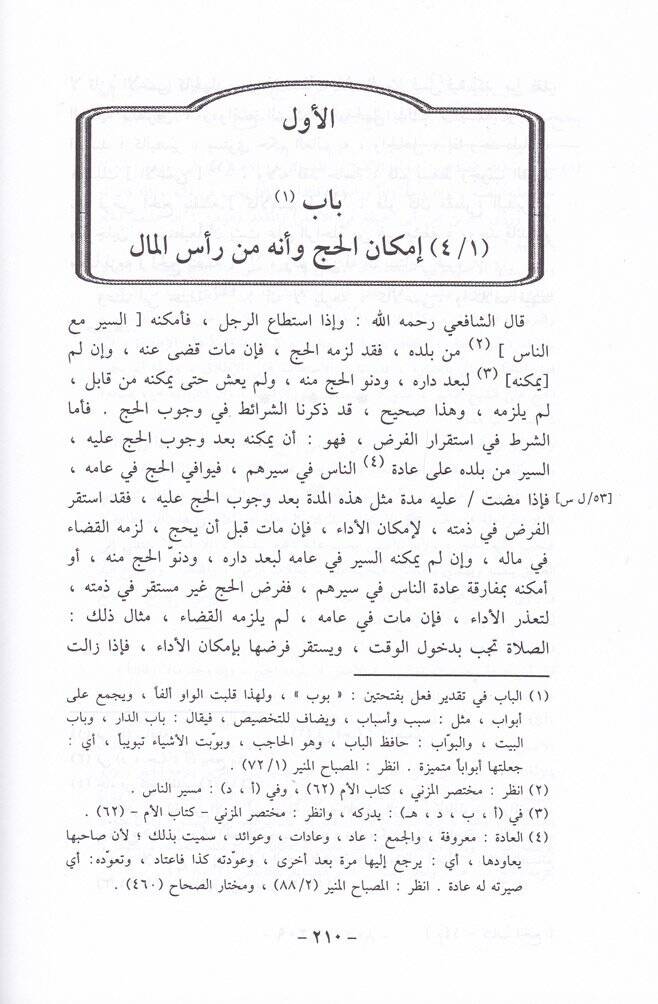 الأول
باب (١)
(٤/١) إمكان الحج وأنه من رأس المال
قال الشافعي رحمه الله : وإذا استطاع الرجل ، فأمكنه [ السير مع
الناس ] (٢) من بلده ، فقد لزمه الحج ، فإن مات قضى عنه ، وإن لم
[يمكنه] (٣) لبعد داره ، ودنو الحج منه ، ولم يعش حتى يمكنه من قابل ،
لم يلزمه ، وهذا صحيح ، قد ذكرنا الشرائط في وجوب الحج . فأما
الشرط في استقرار الفرض ، فهو : أن يمكنه بعد وجوب الحج عليه ،
السير من بلده على عادة (٤) الناس في سيرهم ، فيوافي الحج في عامه ،
فإذا مضت / عليه مدة مثل هذه المدة بعد وجوب الحج عليه ، فقد استقر [٥٣/ل س]
الفرض في ذمته ، لإمكان الأداء ، فإن مات قبل أن يحج ، لزمه القضاء
في ماله ، وإن لم يمكنه السير في عامه لبعد داره ، ودنوّ الحج منه ، أو
أمكنه بمفارقة عادة الناس في سيرهم ، ففرض الحج غير مستقر في ذمته ،
لتعذر الأداء ، فإن مات في عامه ، لم يلزمه القضاء ، مثال ذلك :
الصلاة تجب بدخول الوقت ، ويستقر فرضها بإمكان الأداء ، فإذا زالت
(١) الباب في تقدير فعل بفتحتين : « بوب » ، ولهذا قلبت الواو ألفاً ، ويجمع على
أبواب ، مثل : سبب وأسباب ، ويضاف للتخصيص ، فيقال : باب الدار ، وباب
البيت ، والبوّاب : حافظ الباب ، وهو الحاجب ، وبوّبت الأشياء تبويباً ، أي :
جعلتها أبواباً متميزة . انظر : المصباح المنير (٧٢/١) .
(٢) انظر : مختصر المزني ، كتاب الأم (٦٢) ، وفي (أ ، د) : مسير الناس .
(٣) في (أ ، ب ، د ، هـ) : يدركه ، وانظر : مختصر المزني – كتاب الأم – (٦٢) .
(٤) العادة : معروفة ، والجمع : عاد ، وعادات ، وعوائد ، سميت بذلك ؛ لأن صاحبها
يعاودها ، أي : يرجع إليها مرة بعد أخرى ، وعوّدته كذا فاعتاد ، وتعوّده: أي
صيرته له عادة . انظر : المصباح المنير (٨٨/٢) ، ومختار الصحاح (٤٦٠) .
– ٢١٠ –